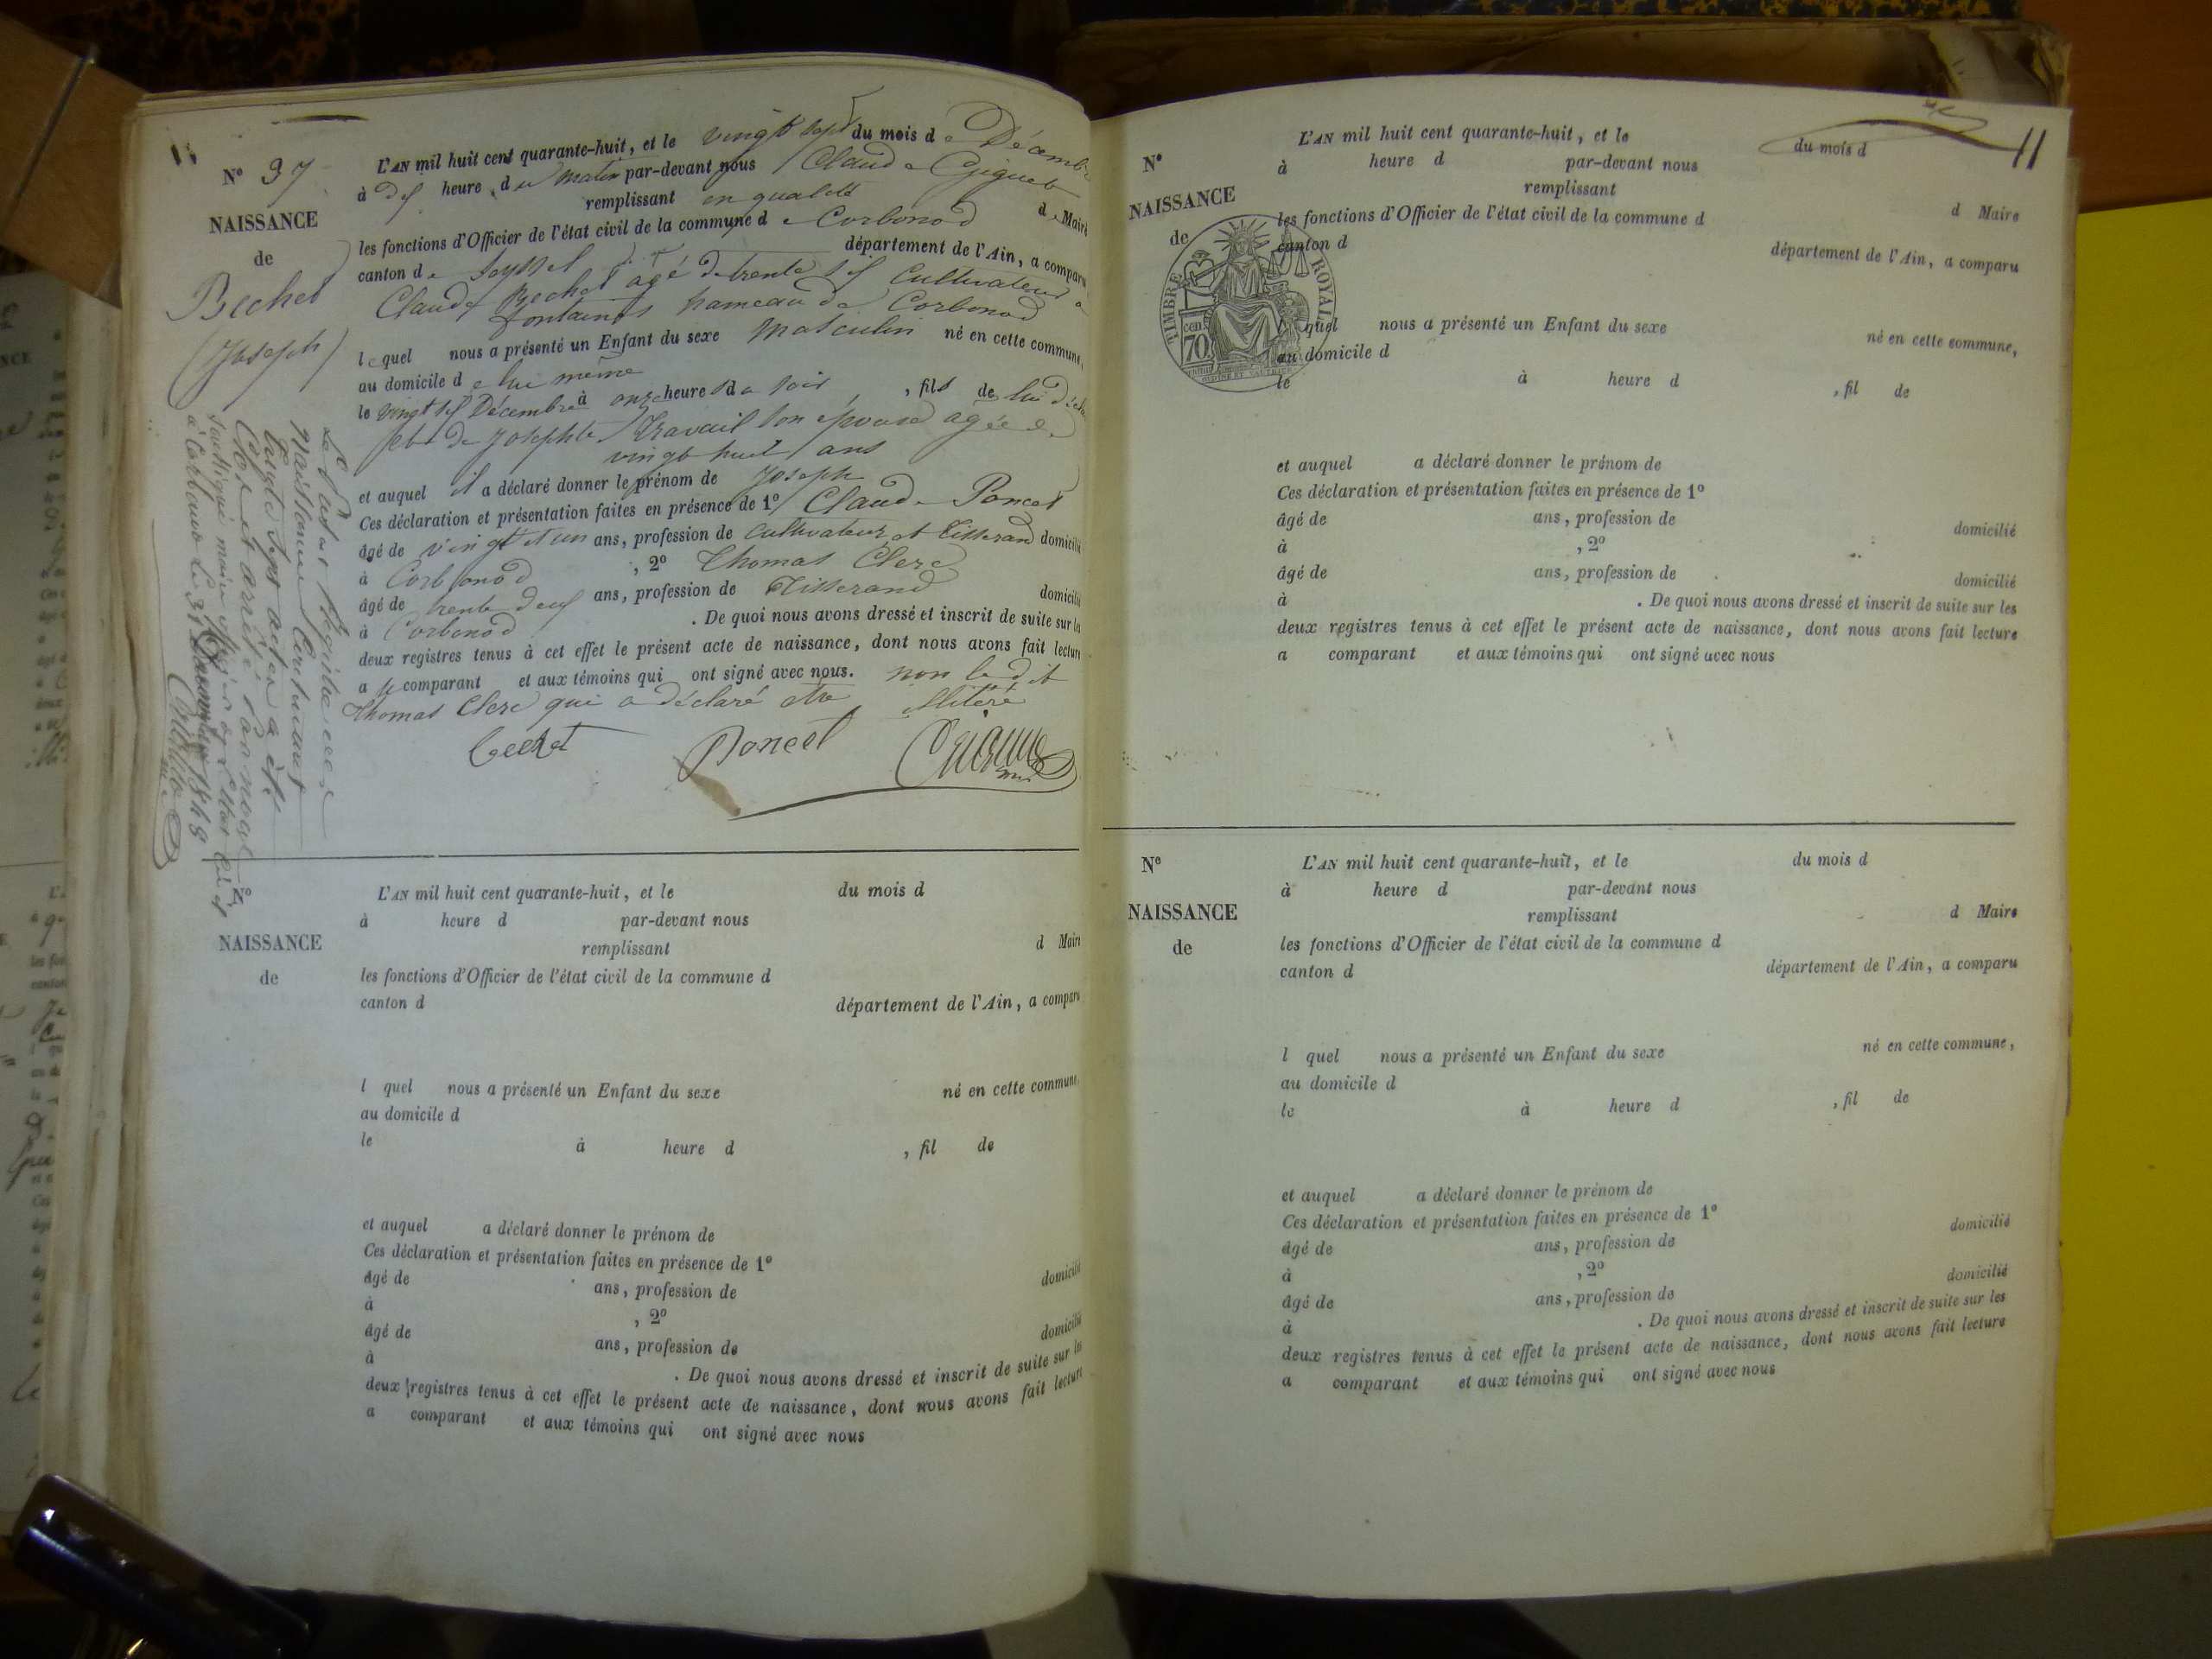 N° 37
NAISSANCE
de
Bechet
(Joseph)
L'AN mil huit cent quarante-huit, et le vingt sept du mois de Décembre
à dix heure du matin par-devant nous Claude Giguet
remplissant en qualité de Maire
les fonctions d'Officier de l'état civil de la commune de Corbonod
canton de Seyssel département de l'Ain, a comparu
Claude Bechet agé de trente six cultivateur a
fontaines hameau de Corbonod
lequel nous a présenté un Enfant du sexe Masculin né en cette commune,
au domicile de lui meme
le vingt six Décembre à onze heures du soir, fils de lui
et de Josephte Travail son épouse agée de
vingt huit ans
et auquel il a déclaré donner le prénom de Joseph
Ces déclaration et présentation faites en présence de 1° Claude Poncet
âgé de vingt et un ans, profession de cultivateur et Tisserand domicilié
à Corbonod, 2° Thomas Clerc
âgé de trente deux ans, profession de Tisserand domicilié
à Corbonod. De quoi nous avons dressé et inscrit de suite sur les
deux registres tenus à cet effet le présent acte de naissance, dont nous avons fait lecture
a u comparant et aux témoins qui ont signé avec nous. non le dit
Thomas Clerc qui a déclaré etre illitéré
Bechet Poncet
Le Registre des
Naissances Contenant
trente sept actes a été
Clos et arrêté par nous
maire officier de l'état civil
à Corbonod le 31 Décembre 1848
L'AN mil huit cent quarante-huit, et le du mois d
à heure d par-devant nous
remplissant d Maire
NAISSANCE
de
les fonctions d'Officier de l'état civil de la commune d
canton d département de l'Ain, a comparu
l quel nous a présenté un Enfant du sexe né en cette commune,
au domicile d
le à heure d , fil de
et auquel a déclaré donner le prénom de
Ces déclaration et présentation faites en présence de 1°
âgé de ans, profession de domicilié
à , 2°
âgé de ans, profession de domicilié
à . De quoi nous avons dressé et inscrit de suite sur les
deux registres tenus à cet effet le présent acte de naissance, dont nous avons fait lecture
a comparant et aux témoins qui ont signé avec nous
11
N°
NAISSANCE
de
TIMBRE ROYAL
70 cen
L'AN mil huit cent quarante-huit, et le du mois d
à heure d par-devant nous
remplissant d Maire
les fonctions d'Officier de l'état civil de la commune d
canton d département de l'Ain, a comparu
l quel nous a présenté un Enfant du sexe né en cette commune,
au domicile d
le à heure d , fil de
et auquel a déclaré donner le prénom de
Ces déclaration et présentation faites en présence de 1°
âgé de ans, profession de domicilié
à , 2°
âgé de ans, profession de domicilié
à . De quoi nous avons dressé et inscrit de suite sur les
deux registres tenus à cet effet le présent acte de naissance, dont nous avons fait lecture
a comparant et aux témoins qui ont signé avec nous
N°
NAISSANCE
de
L'AN mil huit cent quarante-huit, et le du mois d
à heure d par-devant nous
remplissant d Maire
les fonctions d'Officier de l'état civil de la commune d
canton d département de l'Ain, a comparu
l quel nous a présenté un Enfant du sexe né en cette commune,
au domicile d
le à heure d , fil de
et auquel a déclaré donner le prénom de
Ces déclaration et présentation faites en présence de 1°
âgé de ans, profession de domicilié
à , 2°
âgé de ans, profession de domicilié
à . De quoi nous avons dressé et inscrit de suite sur les
deux registres tenus à cet effet le présent acte de naissance, dont nous avons fait lecture
a comparant et aux témoins qui ont signé avec nous